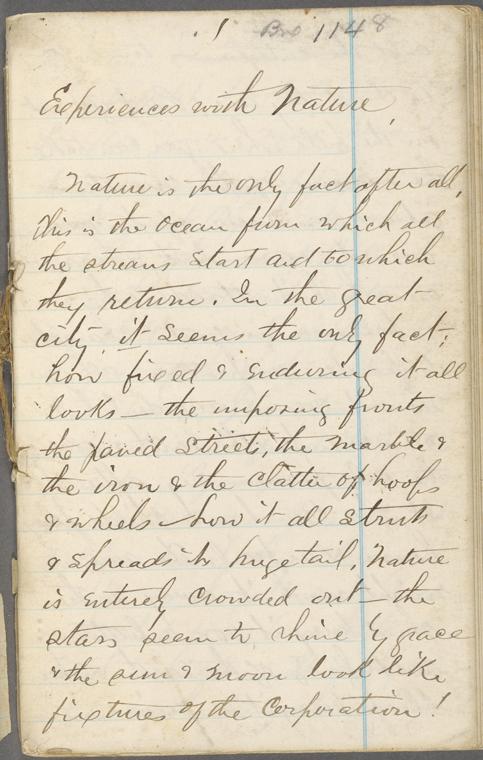 1148
Experiences with Nature.
Nature is the only fact after all,
this is the ocean from which all
the streams start and to which
they return. In the great
city it seems the only fact;
how fixed & enduring it all
looks — the imposing fronts
the paved streets, the marble &
the iron & the clatter of hoofs
& wheels — how it all struts
& spreads its huge tail. Nature
is entirely crowded out — the
stars seem to shine by grace
& the sun & moon look like
fixtures of the Corporation!